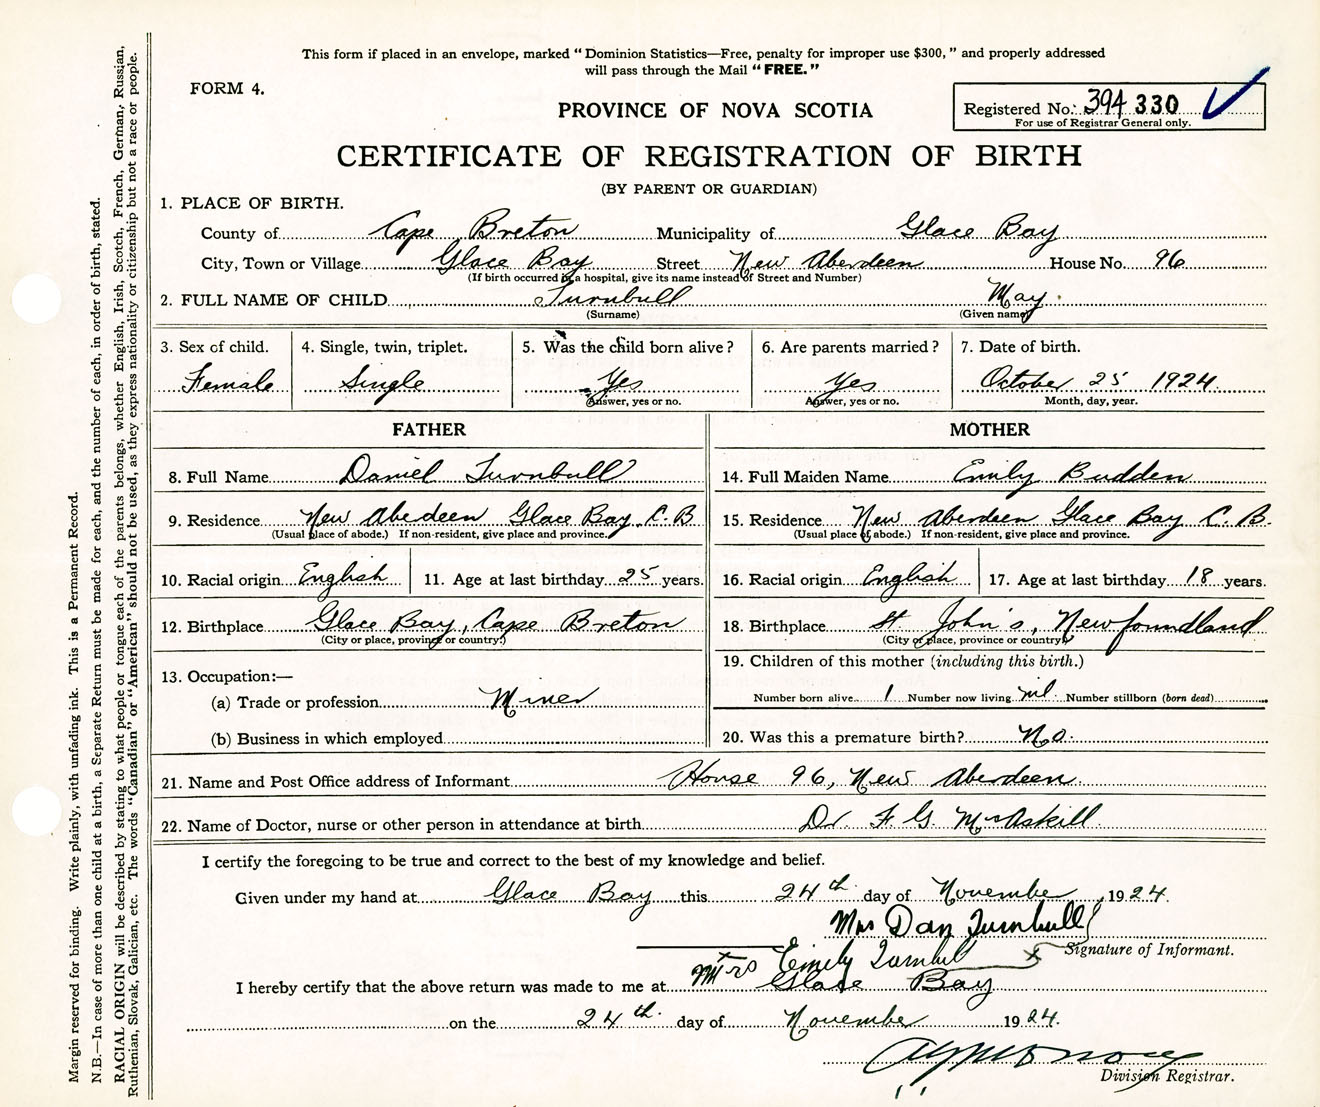 This form if placed in an envelope, marked "Dominion Statistics—Free, penalty for improper use $300," and properly addressed
will pass through the Mail "FREE."
FORM 4.
PROVINCE OF NOVA SCOTIA
Registered No. 394 330
For use of Registrar General only.
CERTIFICATE OF REGISTRATION OF BIRTH
(BY PARENT OR GUARDIAN)
1. PLACE OF BIRTH.
County of Cape Breton Municipality of Glace Bay
City, Town or Village Glace Bay Street New Aberdeen House No. 96
(If birth occurred in a hospital, give its name instead of Street and Number)
2. FULL NAME OF CHILD Turnbull May
(Surname) (Given name)
3. Sex of child. 4. Single, twin, triplet. 5. Was the child born alive? 6. Are parents married? 7. Date of birth.
Female Single Yes Yes October 25 1924
Answer, yes or no. Answer, yes or no. Month, day, year.
FATHER MOTHER
8. Full Name Daniel Turnbull 14. Full Maiden Name Emily Budden
9. Residence New Aberdeen Glace Bay C.B 15. Residence New Aberdeen Glace Bay C.B.
(Usual place of abode.) If non-resident, give place and province. (Usual place of abode.) If non-resident, give place and province.
10. Racial origin English 11. Age at last birthday 25 years. 16. Racial origin English 17. Age at last birthday 18 years.
12. Birthplace Glace Bay, Cape Breton 18. Birthplace St. John's, Newfoundland
(City or place, province or country.) (City or place, province or country)
19. Children of this mother (including this birth.)
13. Occupation:—
(a) Trade or profession Miner Number born alive 1 Number now living nil Number stillborn (born dead)
(b) Business in which employed 20. Was this a premature birth? No.
21. Name and Post Office address of Informant House 96, New Aberdeen.
22. Name of Doctor, nurse or other person in attendance at birth Dr. F. G. McAskill.
I certify the foregoing to be true and correct to the best of my knowledge and belief.
Given under my hand at Glace Bay this 24th day of November, 1924.
Mrs Dan Turnbull
Signature of Informant.
Mrs Emily Turnbul x
I hereby certify that the above return was made to me at Glace Bay
on the 24th. day of November 1924.
Division Registrar.
Margin reserved for binding. Write plainly, with unfading ink. This is a Permanent Record.
N.B.—In case of more than one child at a birth, a Separate Return must be made for each, and the number of each, in order of birth, stated.
RACIAL ORIGIN will be described by stating to what people or tongue each of the parents belongs, whether English, Irish, Scotch, French, German, Russian,
Ruthenian, Slovak, Galician, etc. The words "Canadian" or "American" should not be used, as they express nationality or citizenship but not a race or people.